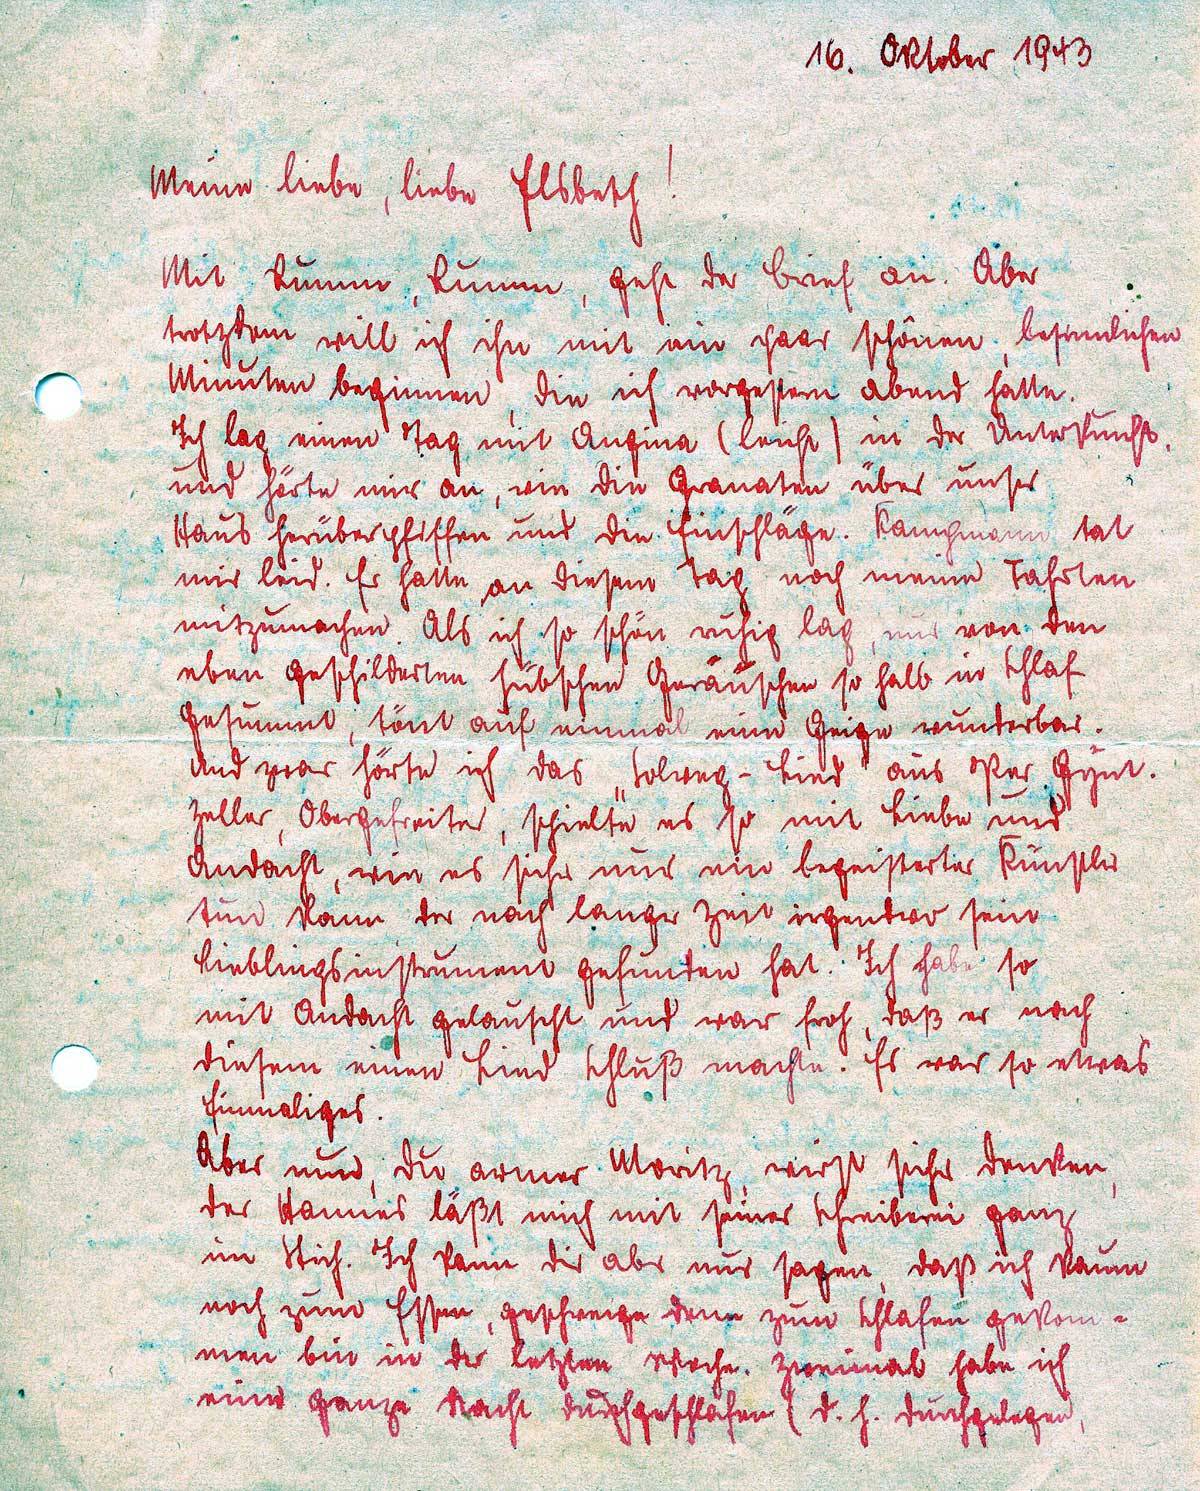 16. Oktober 1943
Meine liebe, liebe Elsbeth!
Mit Bumm, Bumm, geht der Brief an. Aber
trotzdem will ich ihn mit ein paar schönen, besinnlichen
Minuten beginnen, die ich vorgestern abend hatte.
Ich lag einen Tag mit Angina (leicht) in der Unterkunft,
und hörte mir an, wie die Granaten über unser
Haus herüberpfiffen und die Einschläge. Kampmann tat
mir leid. Er hatte an diesem Tag noch meine Fahrten
mitzumachen. Als ich so schön ruhig lag, nur von den
eben geschilderten hübschen Geräuschen so halb in Schlaf
gesummt, tönt auf einmal eine Geige wunderbar.
Und zwar hörte ich das „Solveg-Lied" aus Per Gynt.
Zeller, Obergefreiter, spielte es so mit Liebe und
Andacht, wie es sicher nur ein begeisterter Künstler
tun kann der nach langer Zeit irgendwo sein
Lieblingsinstrument gefunden hat. Ich habe so
mit Andacht gelauscht und war froh, daß er nach
diesem einen Lied Schluß machte. Es war so etwas
Einmaliges.
Aber nun, Du armer Moritz, wirst sicher denken,
der Hannes läßt mich mit seiner Schreiberei ganz
im Stich. Ich kann dir aber nur sagen, daß ich kaum
noch zum Essen, geschweige denn zum Schlafen gekom-
men bin in der letzten Woche. Zweimal habe ich
eine ganze Nacht durchgeschlafen (d. h. durchgelegen,